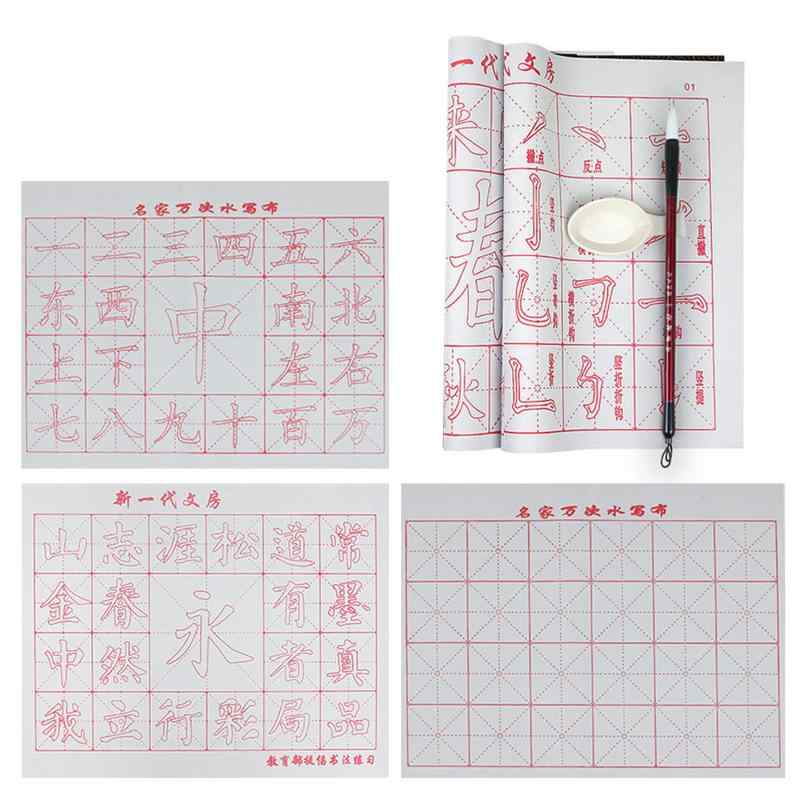 一代文房
01
来
撇点
反点
春
竖钩
直撇
竖弯钩
横折钩
秋
竖弯
竖折折钩
名家万次水写布
一 二 三 四 五 六
东 西 中 南 北
上 下 左 右
七 八 九 十 百 万
新一代文房
山 志 涯 松 道 常
金 春 永 有 墨
中 然 者 真
我 立 行 彩 局 品
教育部提倡书法练习
名家万次水写布